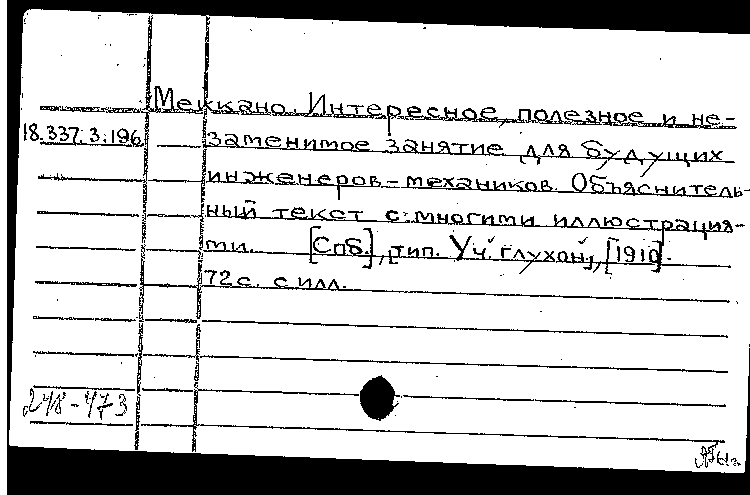 Меккано. Интересное, полезное и не-
18.337.3.196 заменимое занятие для будущих
инженеров-механиков. Объяснитель-
ный текст с многими иллюстрация-
ми. [Спб.], [тип. Уч. глухон.], [1910].
72 с. с илл.
248-473